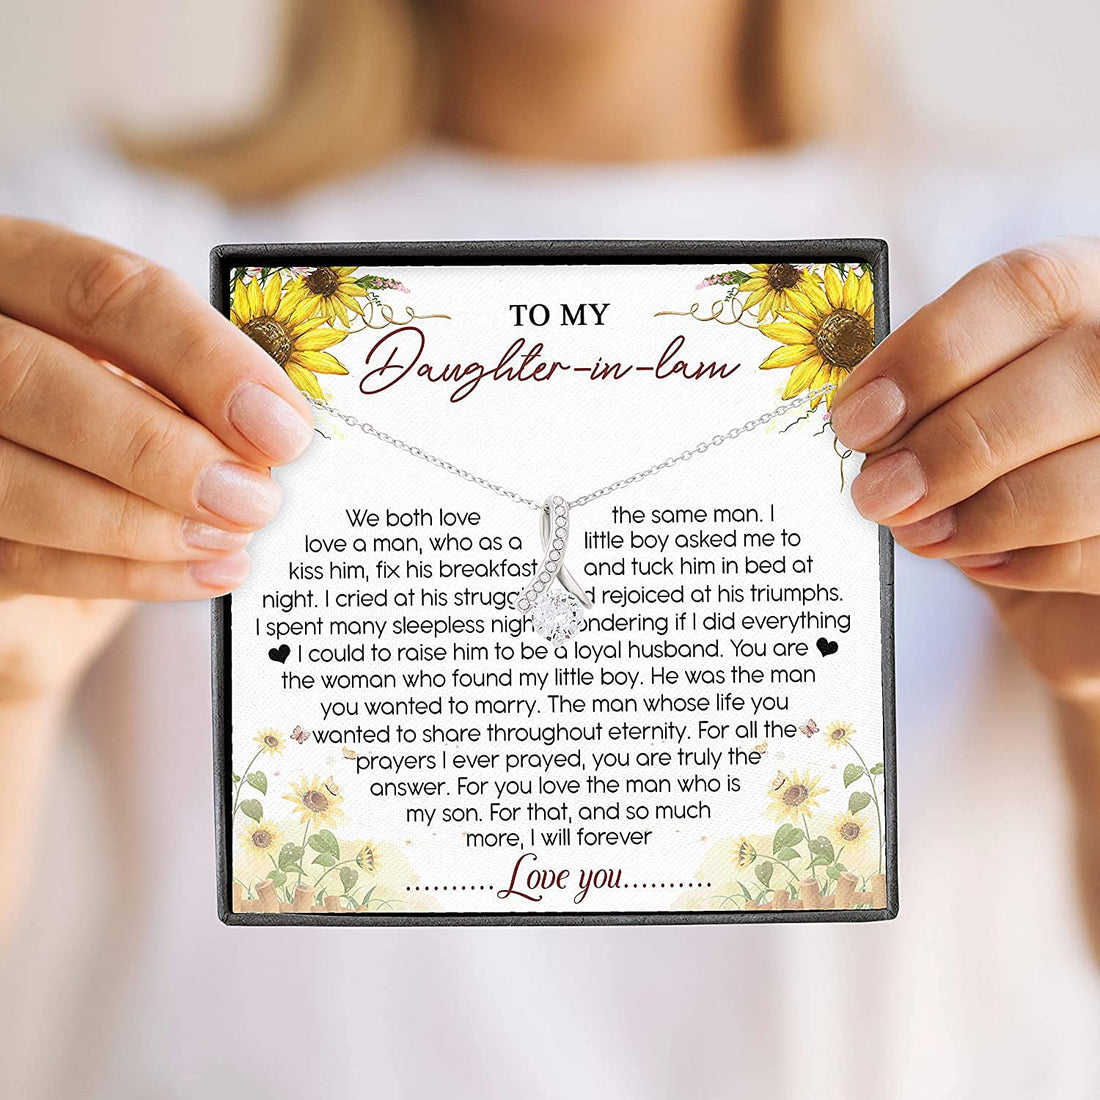 TO MY
Daughter-in-law
We both love the same man. I
love a man, who as a little boy asked me to
kiss him, fix his breakfast and tuck him in bed at
night. I cried at his rejoiced at his triumphs.
I spent many sleepless if I did everything
I could to raise him to be a loyal husband. You are
the woman who found my little boy. He was the man
you wanted to marry. The man whose life you
wanted to share throughout eternity. For all the
prayers I ever prayed, you are truly the
answer. For you love the man who is
my son. For that, and so much
more, I will forever
..........Love you..........